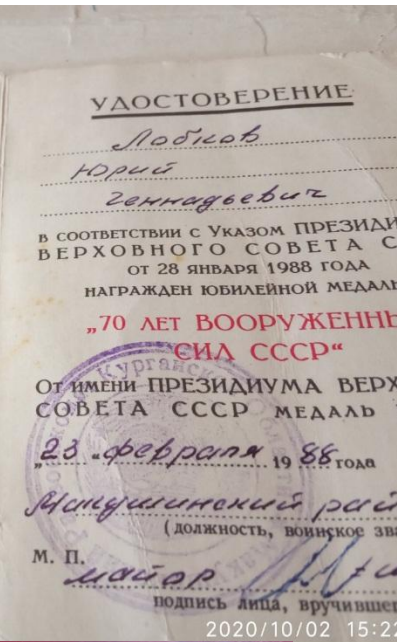 УДОСТОВЕРЕНИЕ
Лобков
Юрий
Геннадьевич
В СООТВЕТСТВИИ С УКАЗОМ ПРЕЗИДИ
ВЕРХОВНОГО СОВЕТА С
ОТ 28 ЯНВАРЯ 1988 ГОДА
НАГРАЖДЕН ЮБИЛЕЙНОЙ МЕДАЛЬ
„70 ЛЕТ ВООРУЖЕННЫ
СИЛ СССР“
ОТ ИМЕНИ ПРЕЗИДИУМА ВЕРХ
СОВЕТА СССР МЕДАЛЬ
„23 “ февраля 1988 года
Макушинский рай
(должность, воинское зва
М. П.
майор
подпись лица, вручивше
2020/10/02 15:22